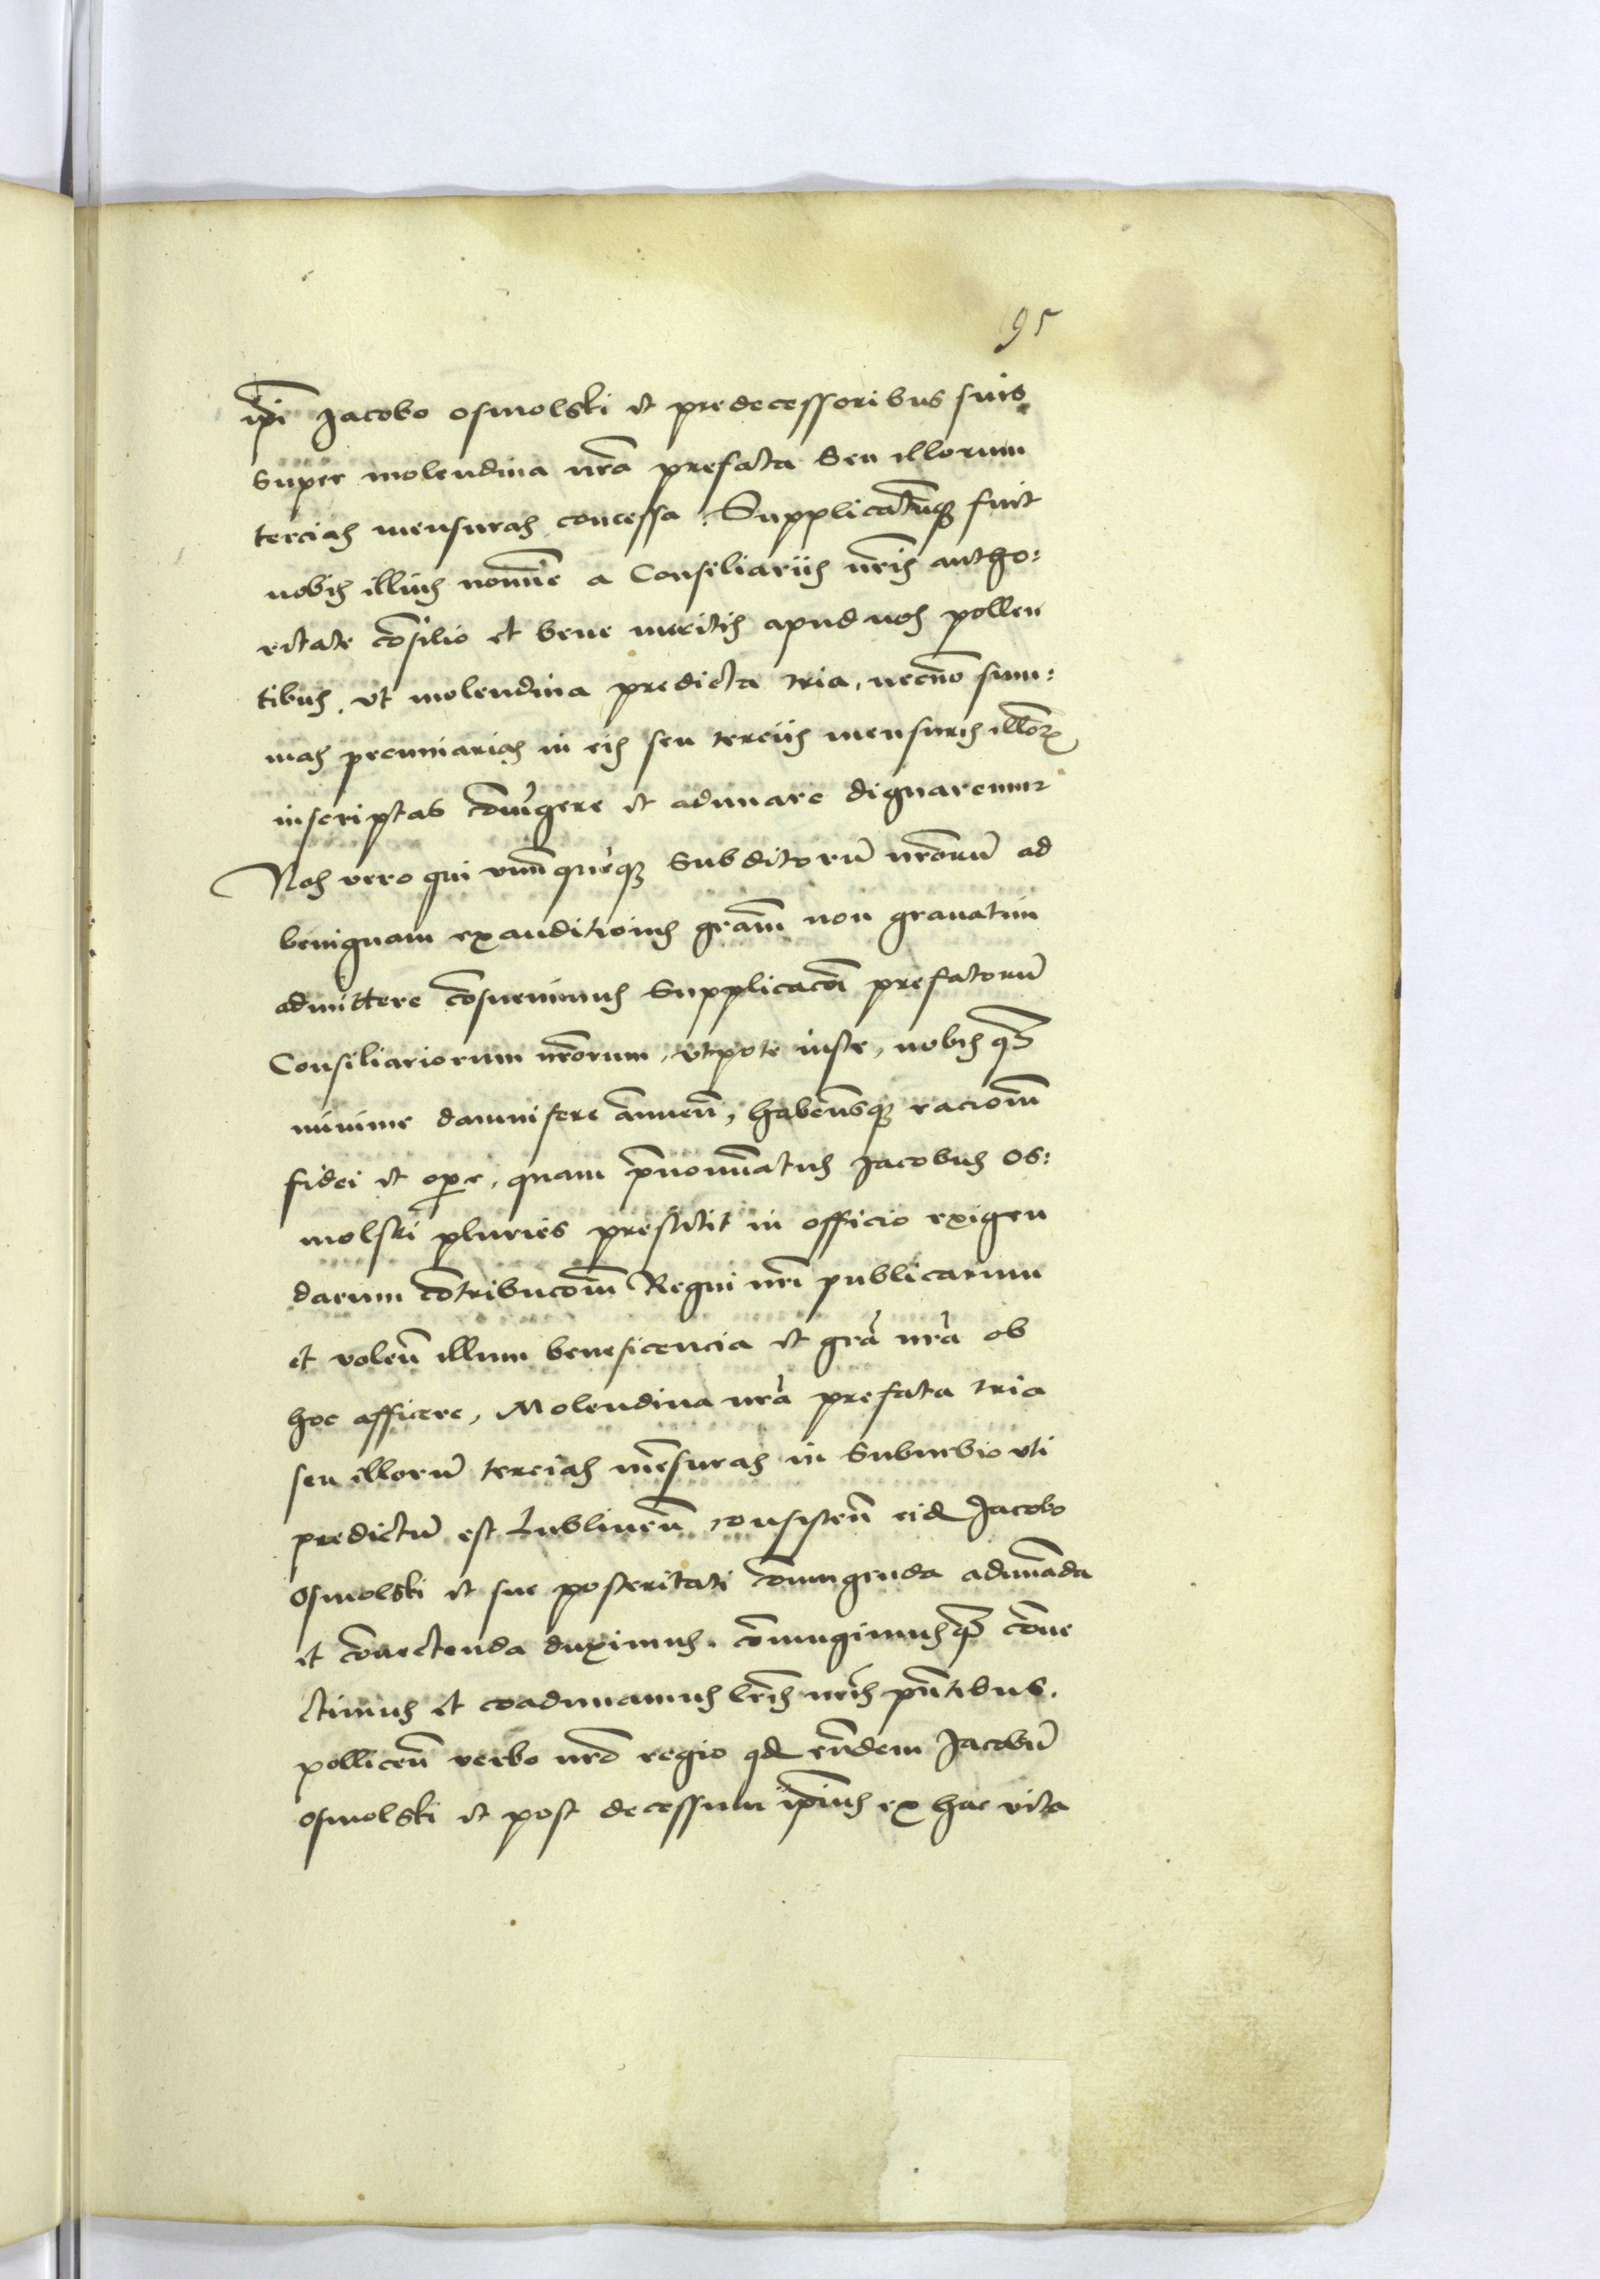 95
ip̄i Jacobo osmolski et predecessoribus suis
super molendina nr̄a prefata seu illorum
tercias mensuras concessa. Supplicatūq̨ fuit
nobis illius noīe a Consiliariis nr̄is autho:
ritate cōsilio et bene meritis apud nos pollen
tibus. vt molendina predicta tria, necnō sum:
mas pecuniarias in eis seu terciis mensuris illor̄
inscriptas cōiūgere et adunare dignaremur
Nos vero qui vnūquēq̨ subditorū nr̄orū ad
benignam exauditionis grām non grauatim
admittere cōsueuimus supplicacōi prefatorū
Consiliariorum nr̄orum, vtpote iuste, nobis q̨
minime damnifere ānuen̄, habentesq̨ racionē
fidei et ope, quam p̄nominatus Jacobus os:
molski pluries prestitit in officio exigen
darum cōtribucionū Regni nr̄i publicarum
et volen̄ illum beneficencia et grā nr̄a ob
hoc afficere, Molendina nr̄a prefata tria
seu illorū tercias mēsuras in suburbio vti
predictū est Lublinen̄ consisten̄ eid Jacobo
osmolski et sue posteritati cōiungenda adunāda
et cōnectenda duximus. cōiungimusq̨ cōne
ctimus et coadunamus lr̄is nr̄is p̄ntibus.
pollicen̄ verbo nr̄o regio qd eūdem Jacobū
osmolski et post decessum ip̄ius ex hac vita